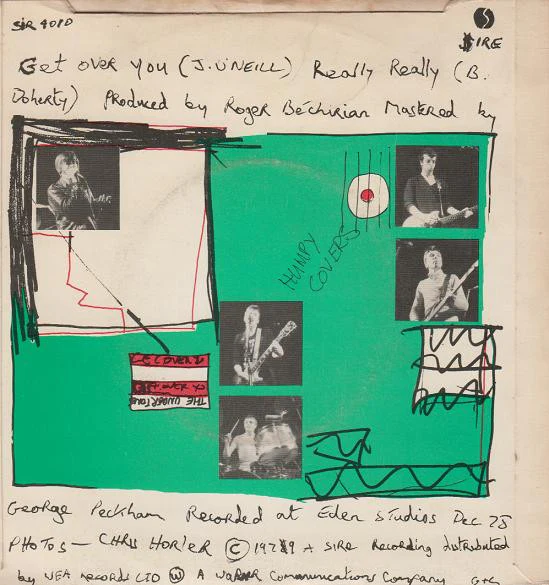 SIR 4010
SIRE
Get over you (J. O'NEILL) Really Really (B.
Doherty) Produced by Roger Béchirian Mastered by
HUMPY
COVERS
GET OVER YO
THE UNDERTONE
George Peckham Recorded at Eden Studios Dec 78
PHOTOS — CHRIS HORLER © 1979 A SIRE Recording distributed
by WEA records LTD Ⓦ A WARNER Communications Company